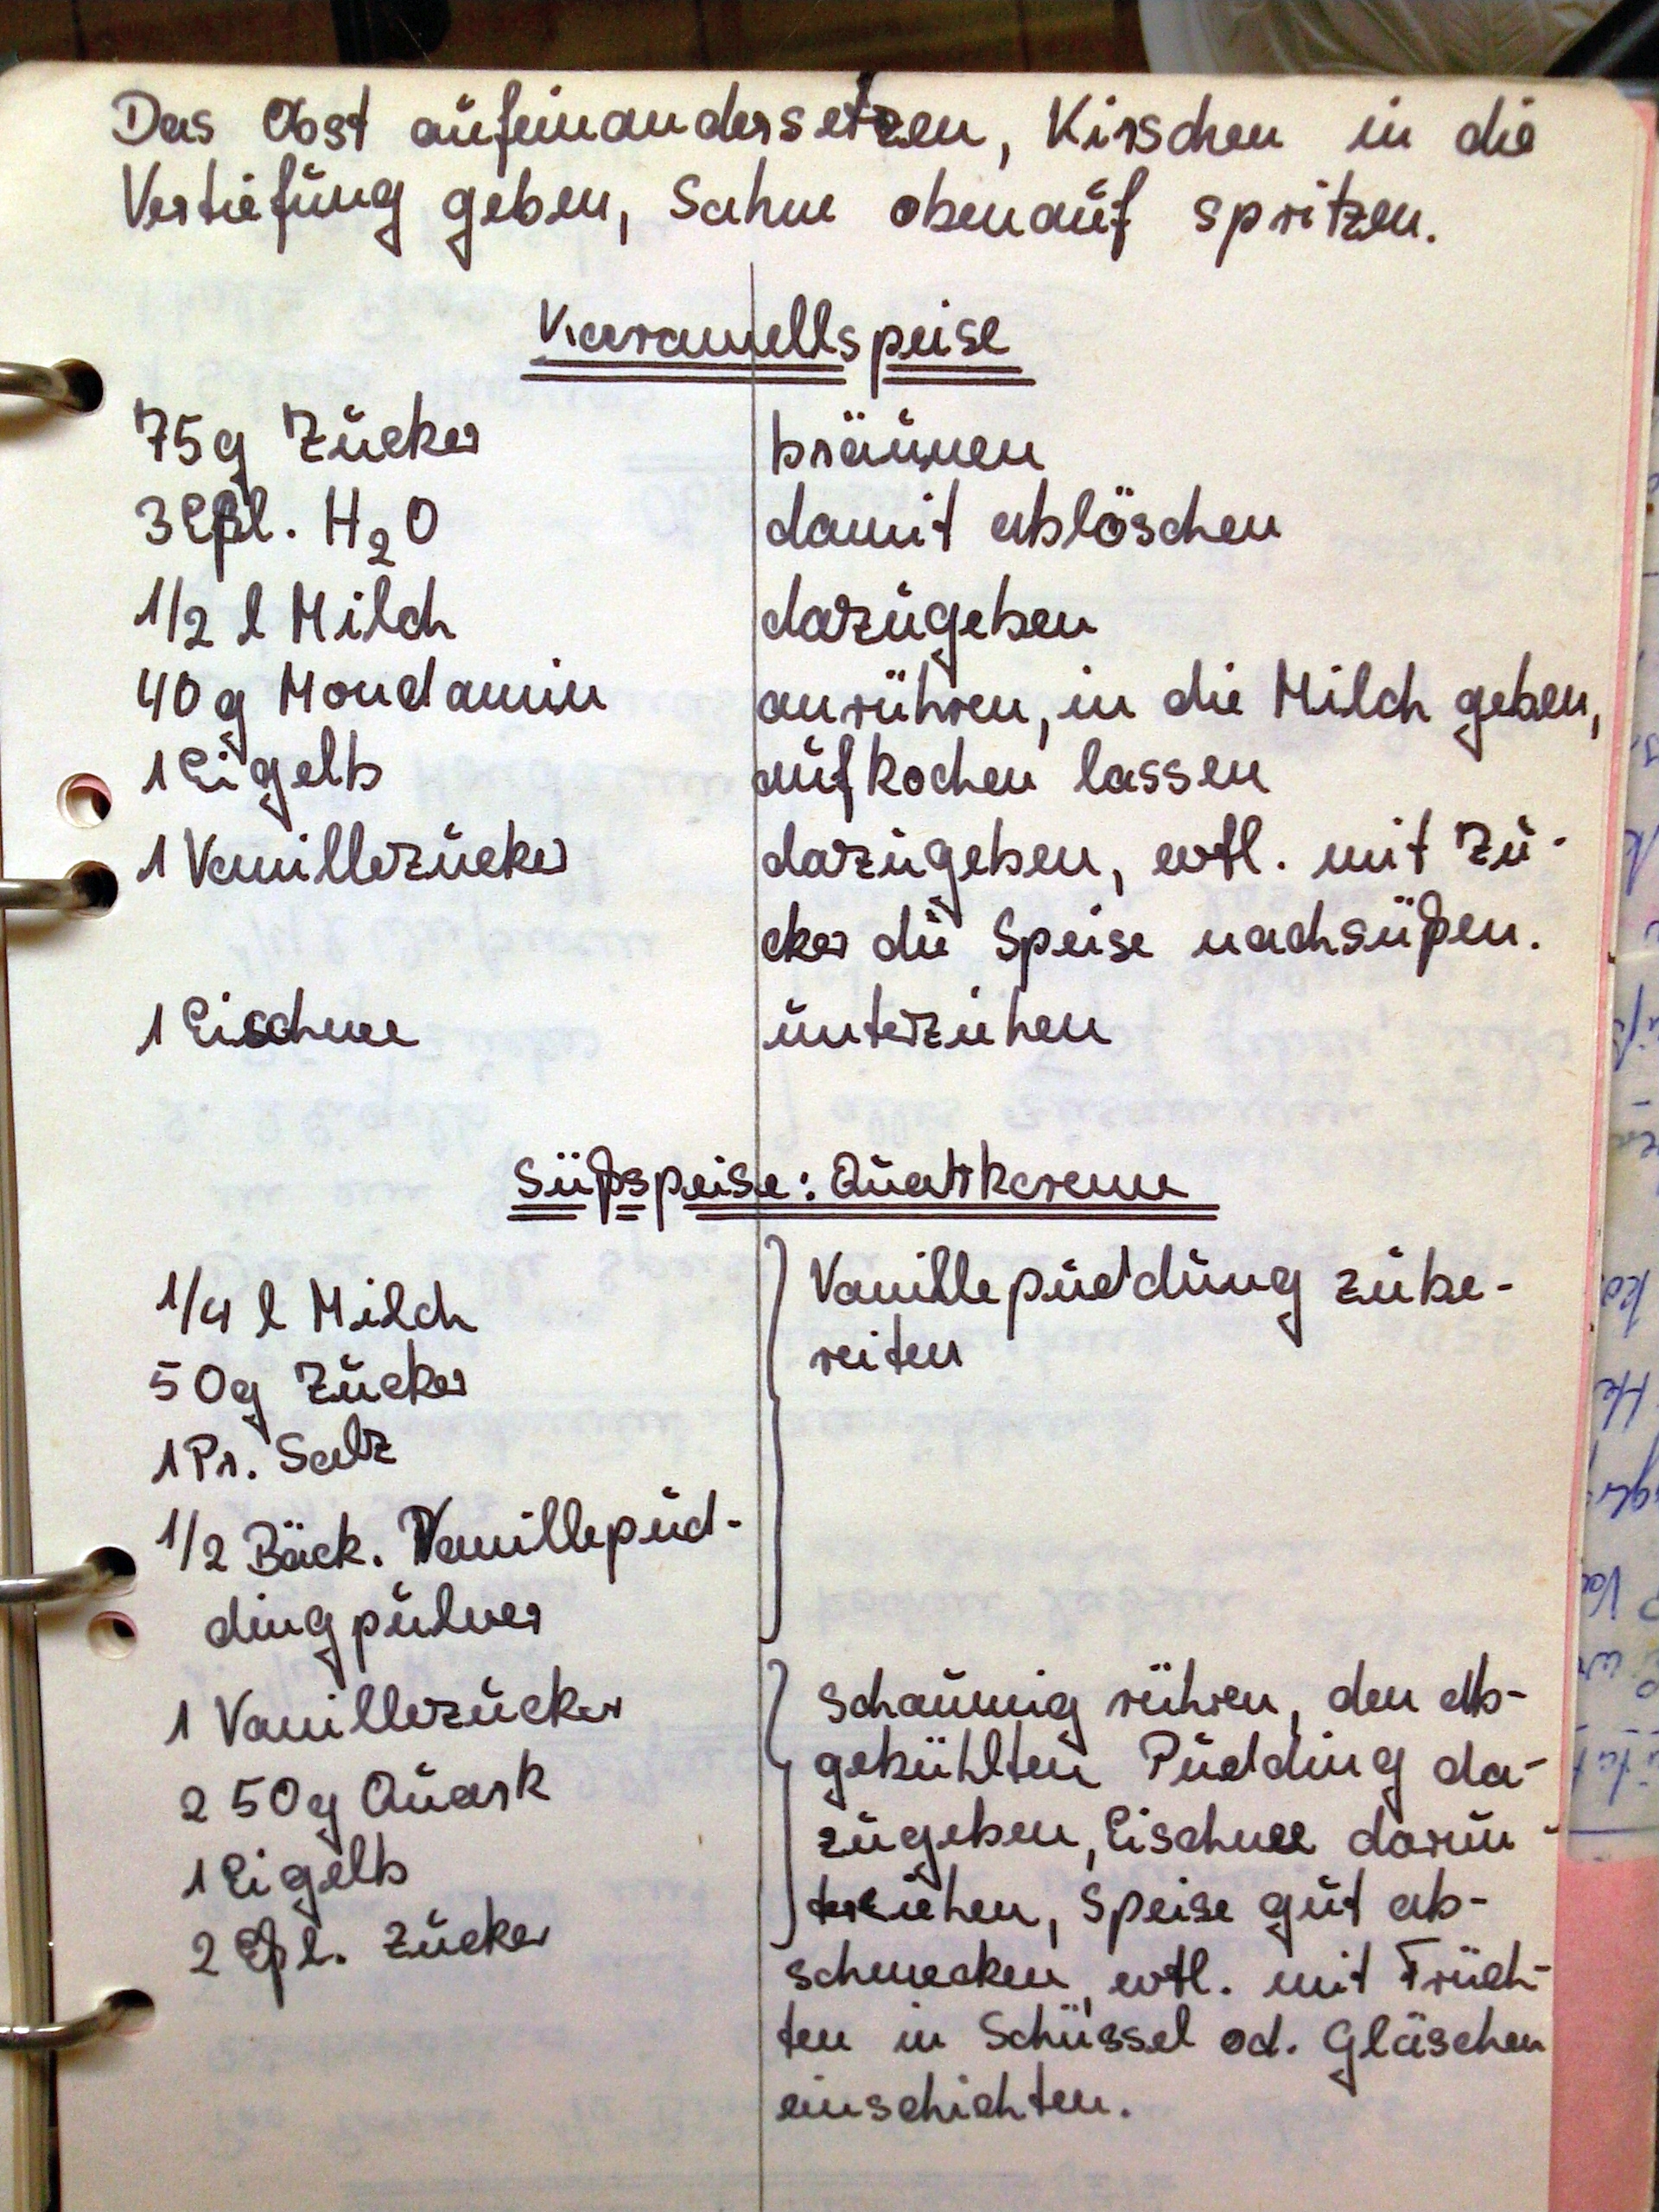 Das Obst aufeinandersetzen, Kirschen in die
Vertiefung geben, Sahne obenauf spritzen.
Karamellspeise
75g Zucker bräunen
3 Eßl. H₂O damit ablöschen
1/2 l Milch dazugeben
40 g Mondamin anrühren, in die Milch geben,
1 Eigelb aufkochen lassen
1 Vanillezucker dazugeben, evtl. mit Zu-
cker die Speise nachsüßen.
1 Eischnee unterziehen
Süßspeise: Quarkcreme
1/4 l Milch Vanillepudding zube-
50g Zucker reiten
1 Pr. Salz
1/2 Bäck. Vanillepud-
dingpulver
1 Vanillezucker schaumig rühren, den ab-
250g Quark gekühlten Pudding da-
1 Eigelb zugeben, Eischnee darun-
2 Eßl. Zucker terziehen, Speise gut ab-
schmecken, evtl. mit Früch-
ten in Schüssel od. Gläschen
einschichten.